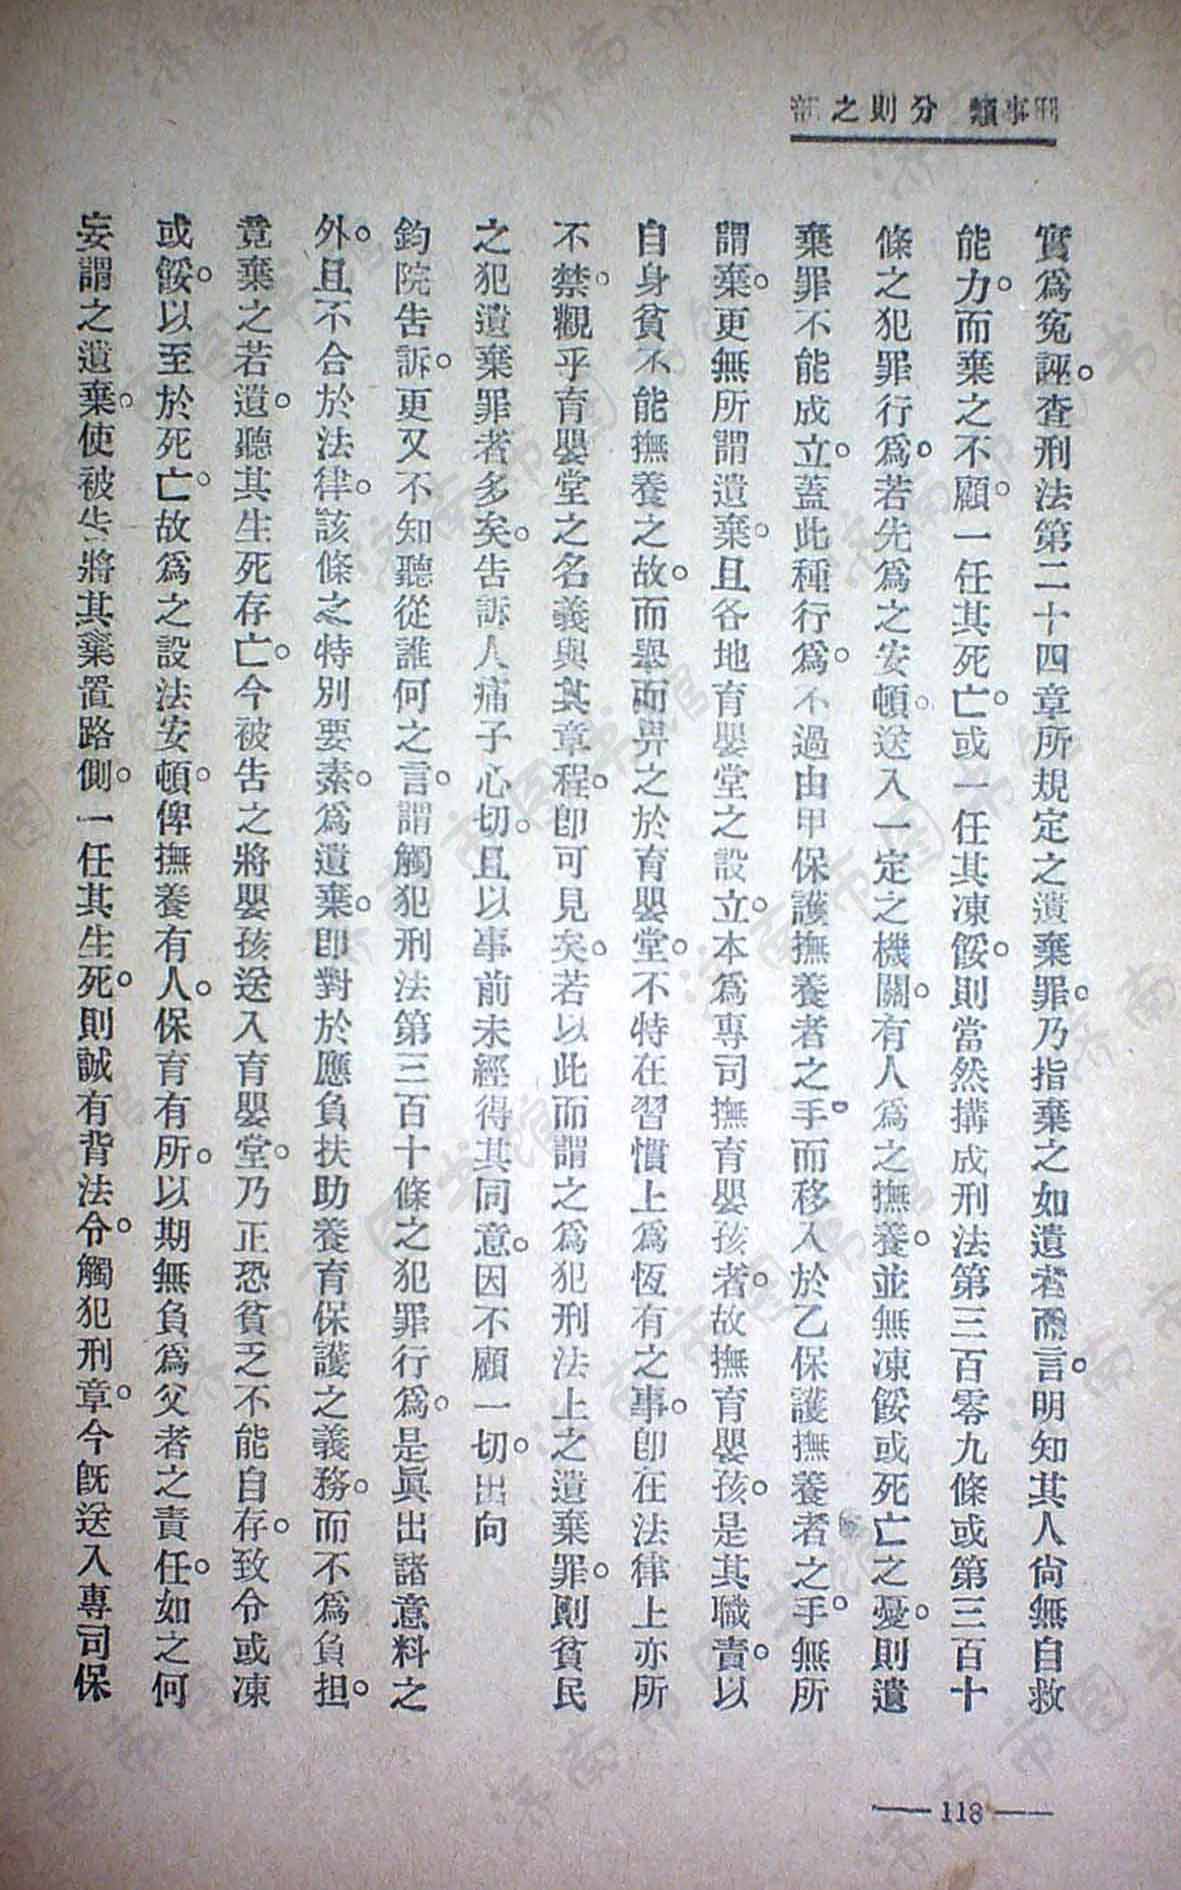 刑事類 分則之部
實爲冤誣。查刑法第二十四章所規定之遺棄罪。乃指棄之如遺者而言。明知其人尙無自救
能力。而棄之不顧。一任其死亡。或一任其凍餒。則當然搆成刑法第三百零九條或第三百十
條之犯罪行爲。若先爲之安頓。送入一定之機關。有人爲之撫養。並無凍餒或死亡之憂。則遺
棄罪不能成立。蓋此種行爲。不過由甲保護撫養者之手。而移入於乙保護撫養者之手。無所
謂棄。更無所謂遺棄。且各地育嬰堂之設立。本爲專司撫育嬰孩者。故撫育嬰孩。是其職責。以
自身貧不能撫養之故。而舉而畀之於育嬰堂。不特在習慣上爲恆有之事。卽在法律上亦所
不禁。觀乎育嬰堂之名義與其章程。卽可見矣。若以此而謂之爲犯刑法上之遺棄罪。則貧民
之犯遺棄罪者多矣。告訴人痛子心切。且以事前未經得其同意。因不顧一切。出向
鈞院告訴。更又不知聽從誰何之言。謂觸犯刑法第三百十條之犯罪行爲。是眞出諸意料之
外。且不合於法律。該條之特別要素。爲遺棄。卽對於應負扶助養育保護之義務。而不爲負担。
竟棄之若遺。聽其生死存亡。今被告之將嬰孩送入育嬰堂。乃正恐貧乏不能自存。致令或凍
或餒。以至於死亡。故爲之設法安頓。俾撫養有人。保育有所。以期無負爲父者之責任。如之何
妄謂之遺棄。使被告將其棄置路側。一任其生死。則誠有背法令。觸犯刑章。今旣送入專司保
118
济南市图书馆